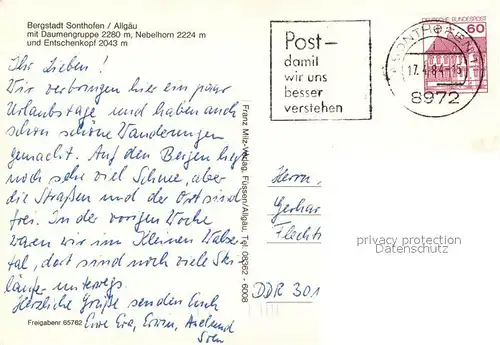 Bergstadt Sonthofen / Allgäu
mit Daumengruppe 2280 m, Nebelhorn 2224 m
und Entschenkopf 2043 m
Ihr Lieben!
Wir verbringen hier ein paar
Urlaubstage und haben auch
schon schöne Wanderungen
gemacht. Auf den Bergen liegt
noch sehr viel Schnee, aber
die Straßen und der Ort sind
frei. In der vorigen Woche
waren wir im Kleinen Walser-
tal, dort sind noch viele Ski-
läufer unterwegs.
Herzliche Grüße senden Euch
Eure Eva, Erwin, Axel und
Sven
Freigabenr 65762
Franz Milz-Verlag, Füssen/Allgäu, Tel. 08362 - 6008
Post-
damit
wir uns
besser
verstehen
SONTHOFEN 1
17.4.84-15
8972
DEUTSCHE BUNDESPOST
60
Herrn
Gerhar
Flechts
DDR 301
privates Sammlerarchiv
copyright